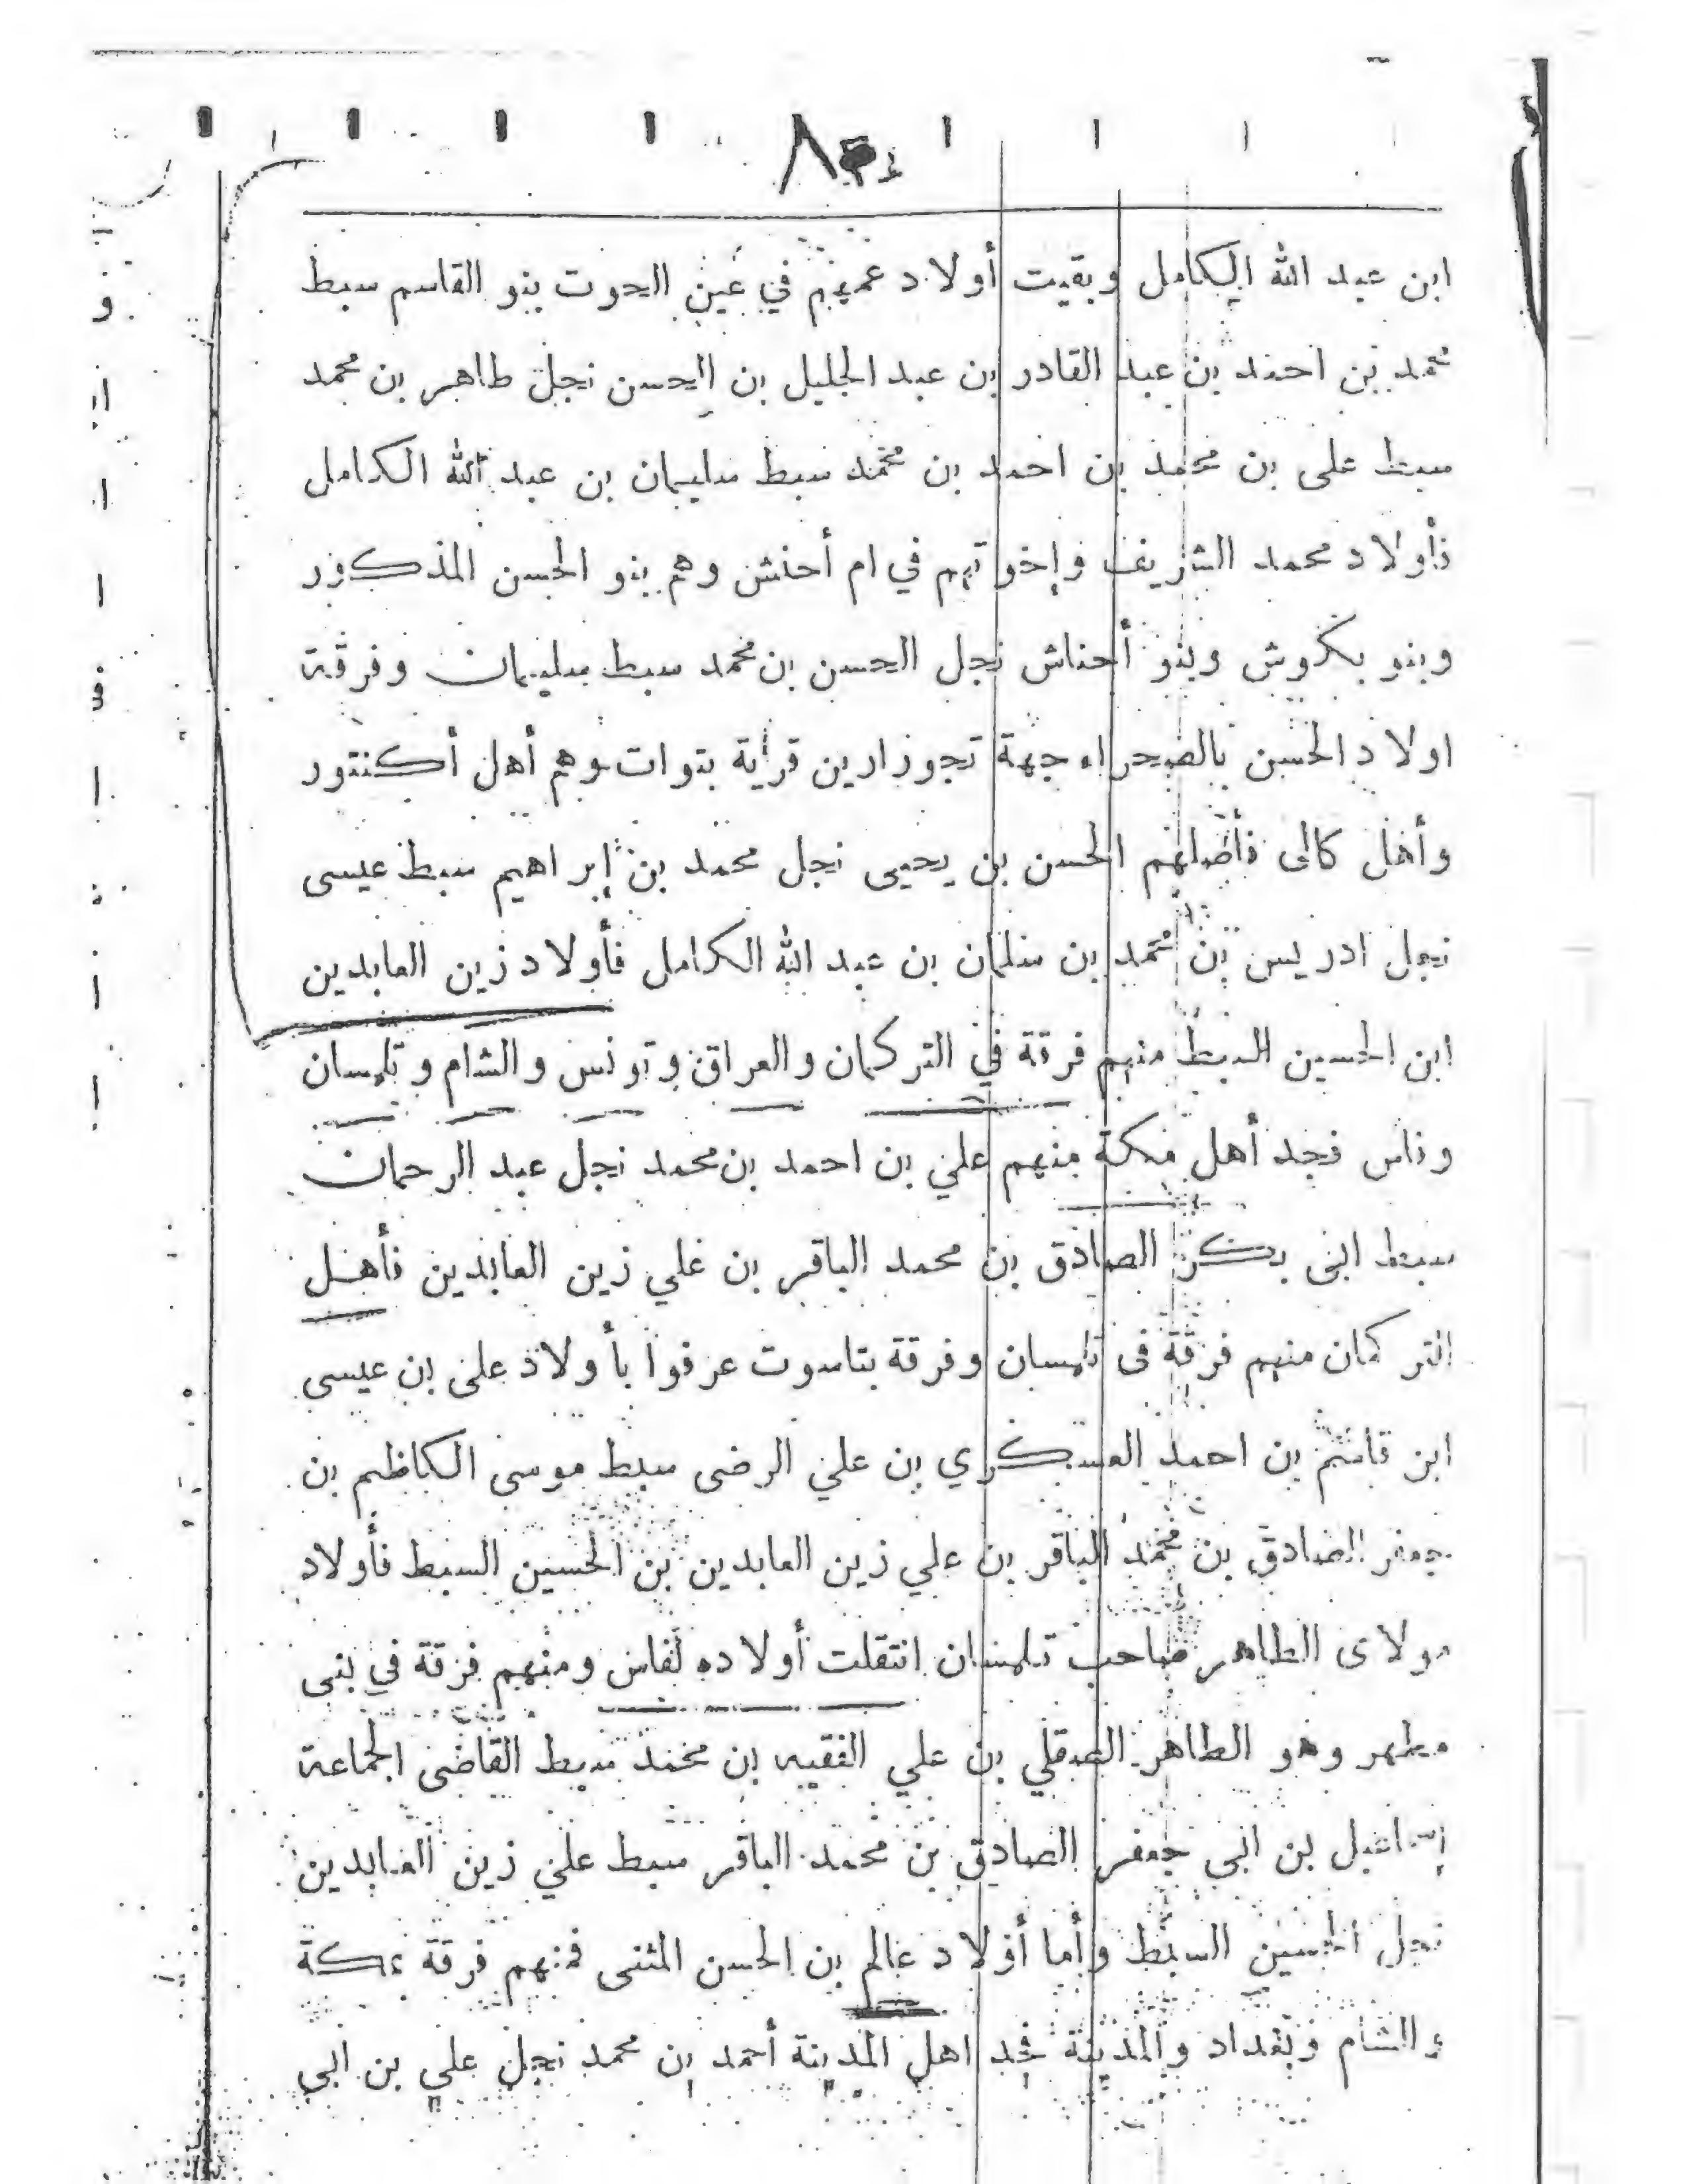 ابن عبد الله الكامل وبقيت أولاد عمهم في عين الحوت بنو القاسم سبط
محمد بن احمد بن عبد القادر بن عبد الجليل بن الحسن نجل طاهر بن محمد
سبط على بن محمد بن احمد بن محمد سبط سليمان بن عبد الله الكامل
فأولاد محمد الشريف وإخواتهم في ام أحنش وهم بنو الحسن المذكور
وبنو بكروش وبنو أحناش نجل الحسن بن محمد سبط سليمان وفرقة
اولاد الحسن بالصحراء جهة تجوزارين قرية بتوات وهم أهل أكنتور
وأهل كالى فأصلهم الحسن بن يحيى نجل محمد بن إبراهيم سبط عيسى
نجل ادريس بن محمد بن سلمان بن عبد الله الكامل فأولاد زين العابدين
ابن الحسين السبط منهم فرقة في التركمان والعراق وتونس والشام وتلمسان
وفاس فجد أهل مكة منهم علي بن احمد بن محمد نجل عبد الرحمان
سبط ابى بكر الصادق بن محمد الباقر بن علي زين العابدين فأهل
التركمان منهم فرقة فى تلمسان وفرقة بتاسوت عرفوا بأولاد على بن عيسى
ابن قاسم بن احمد العسكري بن علي الرضى سبط موسى الكاظم بن
جعفر الصادق بن محمد الباقر بن علي زين العابدين بن الحسين السبط فأولاد
مولاى الطاهر صاحب تلمسان انتقلت أولاده لفاس ومنهم فرقة في بنى
مطهر وهو الطاهر الصقلي بن علي الفقيه بن محمد سبط القاضى الجماعة
إسماعيل بن ابى جعفر الصادق بن محمد الباقر سبط علي زين العابدين
نجل الحسين السبط وأما أولاد عالم بن الحسن المثنى فمنهم فرقة بمكة
والشام وبغداد والمدينة فجد اهل المدينة أحمد بن محمد نجل علي بن ابي